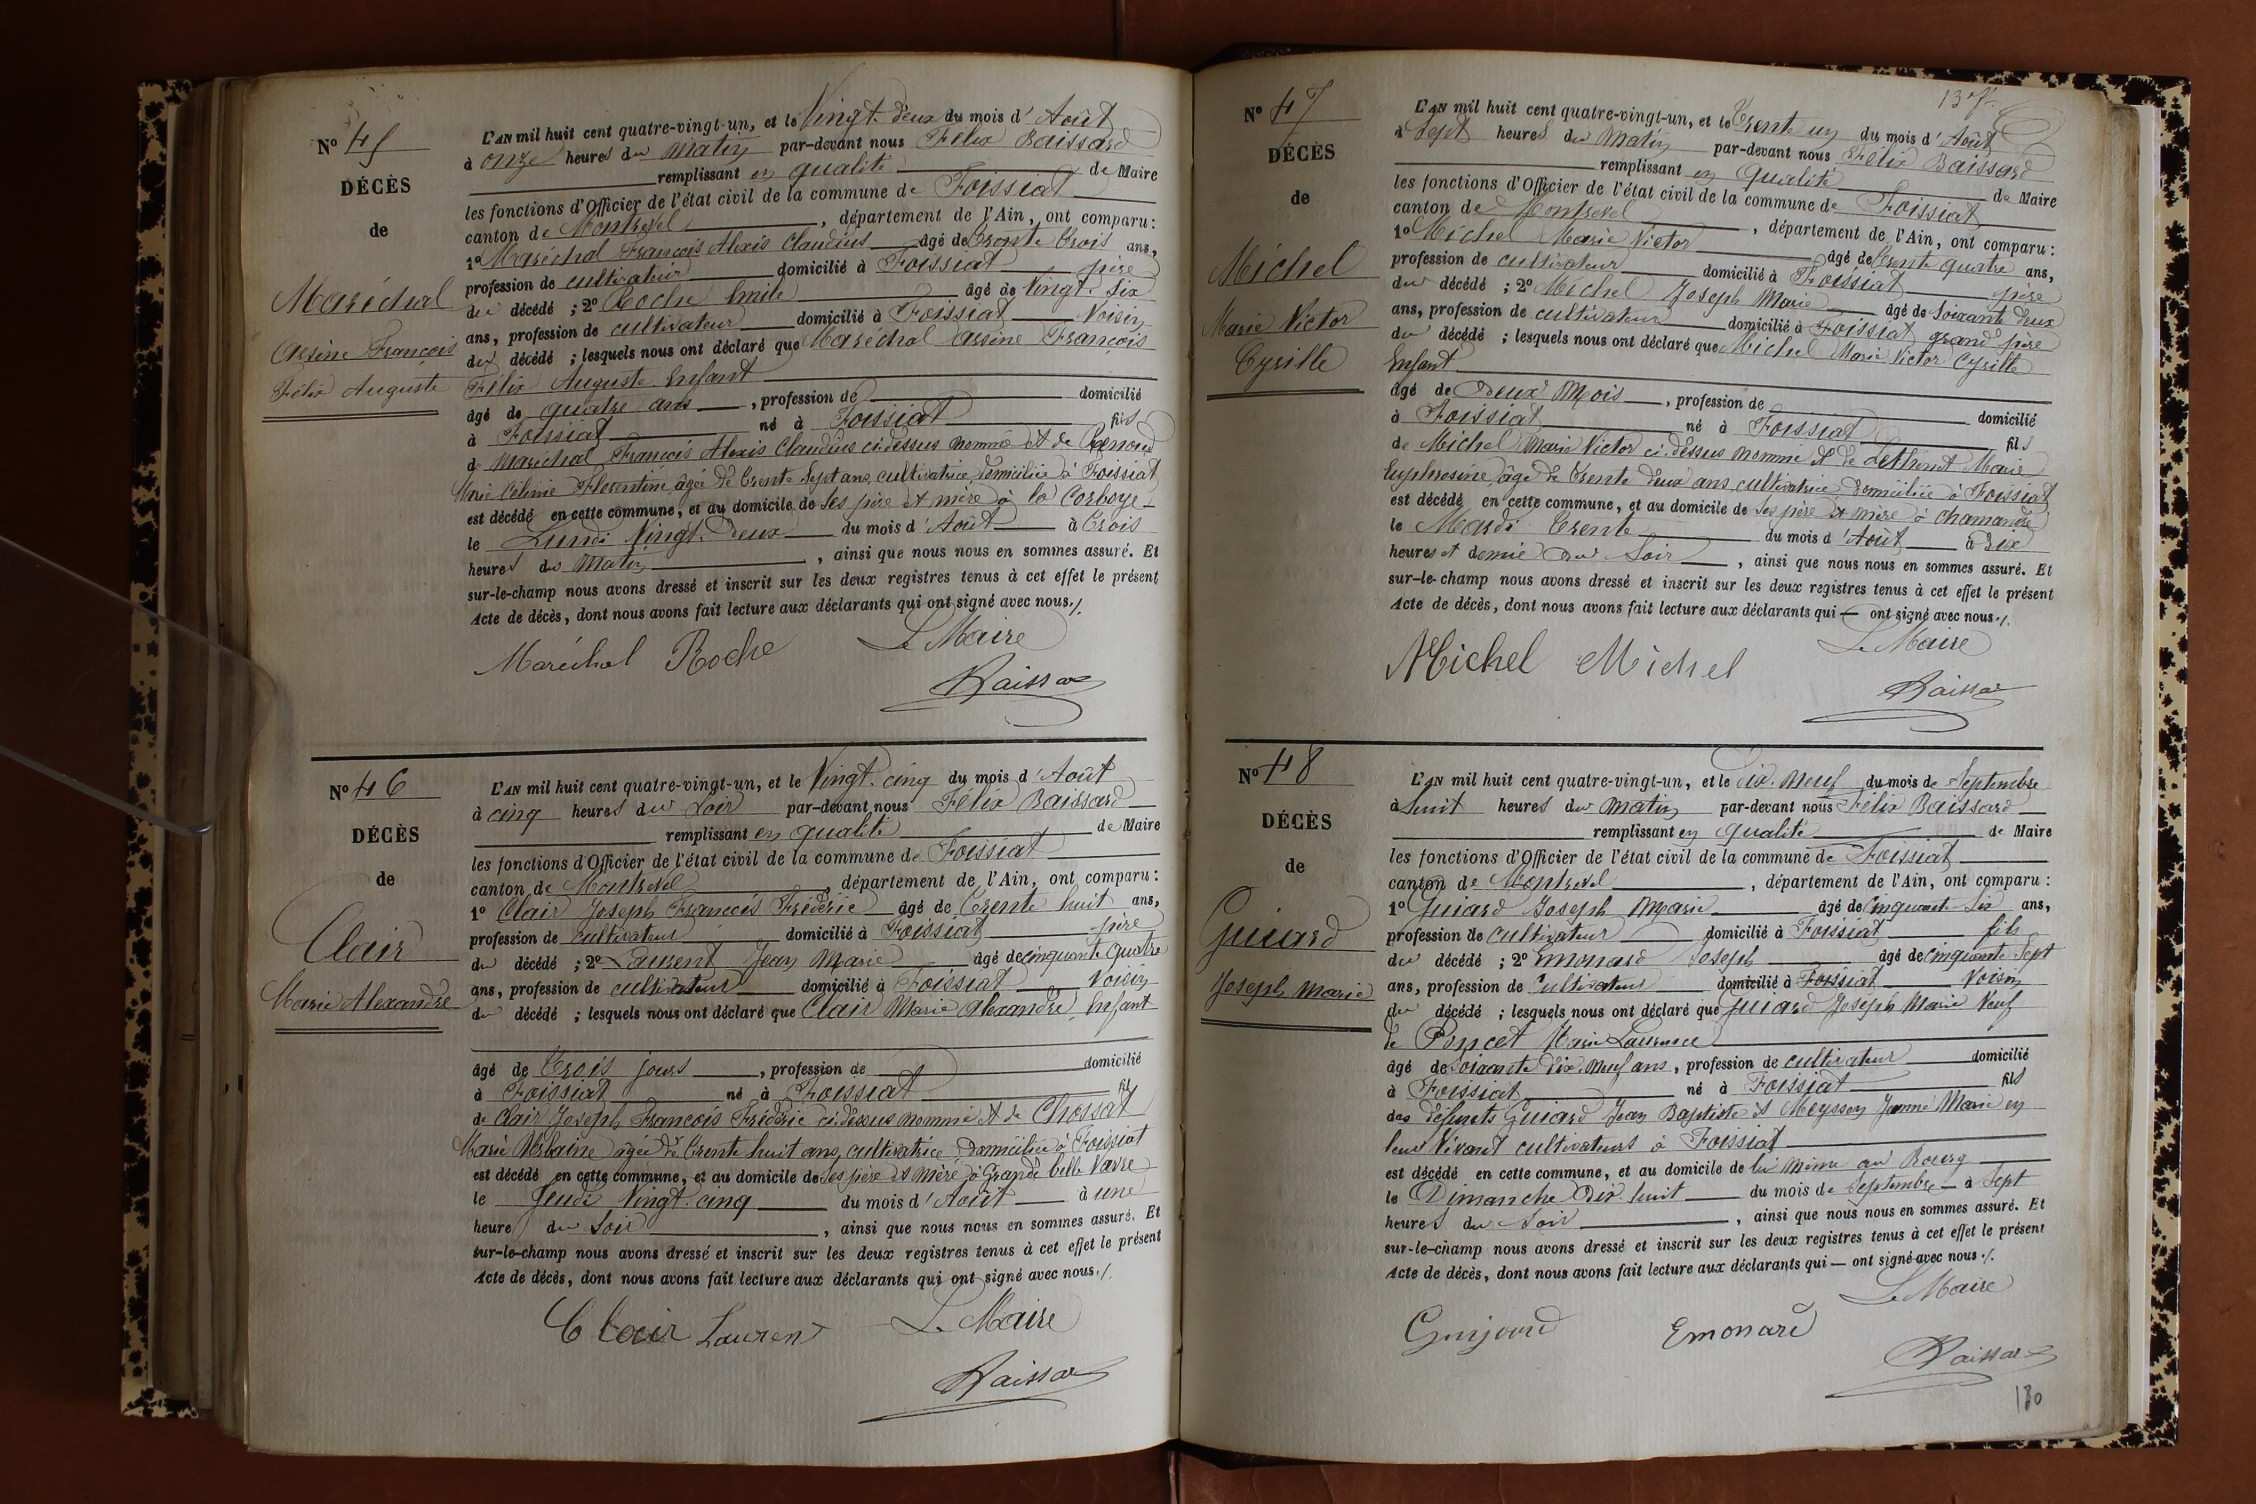 N° 45
DÉCÈS
de
Maréchal
Arsène François
Félix Auguste
L'AN mil huit cent quatre-vingt-un, et le Vingt-deux du mois d'Août
à onze heures du matin par-devant nous Félix Baissard
remplissant en qualité de Maire
les fonctions d'Officier de l'état civil de la commune de Foissiat
canton de Montrevel, département de l'Ain, ont comparu:
1° Maréchal François Alexis Claudius âgé de trente trois ans,
profession de cultivateur domicilié à Foissiat père
du décédé; 2° Roche Emile âgé de Vingt-six
ans, profession de cultivateur domicilié à Foissiat Voisin
du décédé; lesquels nous ont déclaré que Maréchal Arsène François
Félix Auguste Enfant
âgé de quatre ans, profession de domicilié
à Foissiat né à Foissiat fils
de Maréchal François Alexis Claudius ci-dessus nommé et de
Marie Célinie Florentine âgée de trente sept ans, cultivatrice, domiciliée à Foissiat
est décédé en cette commune, et au domicile de ses père et mère à la Corboye
le Lundi Vingt-Deux du mois d'Août à trois
heures du matin, ainsi que nous nous en sommes assuré. Et
sur-le-champ nous avons dressé et inscrit sur les deux registres tenus à cet effet le présent
Acte de décès, dont nous avons fait lecture aux déclarants qui ont signé avec nous./.
Maréchal Roche Le Maire
Baissard
N° 46
DÉCÈS
de
Clair
Marie Alexandre
L'AN mil huit cent quatre-vingt-un, et le Vingt-cinq du mois d'Août
à cinq heures du soir par-devant nous Félix Baissard
remplissant en qualité de Maire
les fonctions d'Officier de l'état civil de la commune de Foissiat
canton de Montrevel, département de l'Ain, ont comparu:
1° Clair Joseph François Frédéric âgé de trente huit ans,
profession de cultivateur domicilié à Foissiat père
du décédé; 2° Laurent Jean Marie âgé de cinquante quatre
ans, profession de cultivateur domicilié à Foissiat Voisin
du décédé; lesquels nous ont déclaré que Clair Marie Alexandre, Enfant
âgé de trois jours, profession de domicilié
à Foissiat né à Foissiat fils
de Clair Joseph François Frédéric ci-dessus nommé et de Chossat
Marie âgée de trente huit ans, cultivatrice, domiciliée à Foissiat
est décédé en cette commune, et au domicile de ses père et mère à Grande belle Vavre
le Jeudi Vingt-cinq du mois d'Août à une
heure du soir, ainsi que nous nous en sommes assuré. Et
sur-le-champ nous avons dressé et inscrit sur les deux registres tenus à cet effet le présent
Acte de décès, dont nous avons fait lecture aux déclarants qui ont signé avec nous./.
Clair Laurent Le Maire
Baissard
N° 47
DÉCÈS
de
Michel
Marie Victor
Cyrille
L'AN mil huit cent quatre-vingt-un, et le trente un du mois d'Août
à sept heures du matin par-devant nous Félix Baissard
remplissant en qualité de Maire
les fonctions d'Officier de l'état civil de la commune de Foissiat
canton de Montrevel, département de l'Ain, ont comparu:
1° Michel Marie Victor âgé de trente quatre ans,
profession de cultivateur domicilié à Foissiat père
du décédé; 2° Michel Joseph Marie âgé de soixante deux
ans, profession de cultivateur domicilié à Foissiat grand père
du décédé; lesquels nous ont déclaré que Michel Marie Victor Cyrille
Enfant
âgé de Deux Mois, profession de domicilié
à Foissiat né à Foissiat fils
de Michel Marie Victor ci-dessus nommé et de Marie
Euphrosine âgée de trente deux ans, cultivatrice, domiciliée à Foissiat
est décédé en cette commune, et au domicile de ses père et mère à Chamandre
le Mardi trente du mois d'Août à six
heures et demie du soir, ainsi que nous nous en sommes assuré. Et
sur-le-champ nous avons dressé et inscrit sur les deux registres tenus à cet effet le présent
Acte de décès, dont nous avons fait lecture aux déclarants qui — ont signé avec nous./.
Michel Michel Le Maire
Baissard
N° 48
DÉCÈS
de
Guiard
Joseph Marie
L'AN mil huit cent quatre-vingt-un, et le dix-neuf du mois de Septembre
à huit heures du matin par-devant nous Félix Baissard
remplissant en qualité de Maire
les fonctions d'Officier de l'état civil de la commune de Foissiat
canton de Montrevel, département de l'Ain, ont comparu:
1° Guiard Joseph Marie âgé de cinquante six ans,
profession de cultivateur domicilié à Foissiat fils
du décédé; 2° Emonard Joseph âgé de cinquante sept
ans, profession de cultivateur domicilié à Foissiat Voisin
du décédé; lesquels nous ont déclaré que Guiard Joseph Marie Veuf
de Poncet Marie Laurence
âgé de soixante dix-neuf ans, profession de cultivateur domicilié
à Foissiat né à Foissiat fils
des défunts Guiard Jean Baptiste et Meysson Jeanne Marie en
leur Vivant cultivateurs à Foissiat
est décédé en cette commune, et au domicile de lui même au Bourg
le Dimanche Dix-huit du mois de Septembre à Sept
heures du soir, ainsi que nous nous en sommes assuré. Et
sur-le-champ nous avons dressé et inscrit sur les deux registres tenus à cet effet le présent
Acte de décès, dont nous avons fait lecture aux déclarants qui — ont signé avec nous./.
Le Maire
Guiard Emonard
Baissard
180